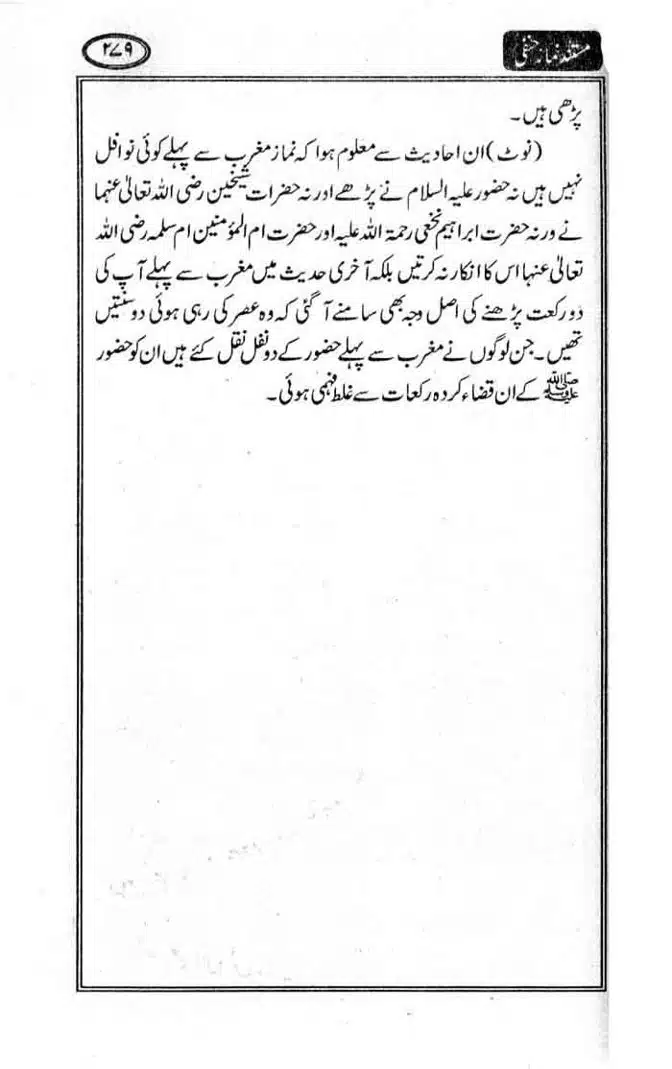 مستند نماز حنفی
۲۷۹
پڑھی ہیں۔
(نوٹ) ان احادیث سے معلوم ہوا کہ نماز مغرب سے پہلے کوئی نوافل
نہیں ہیں نہ حضور علیہ السلام نے پڑھے اور نہ حضرات شیخین رضی اللہ تعالیٰ عنہما
نے ورنہ حضرت ابراہیم نخعی رحمۃ اللہ علیہ اور حضرت ام المؤمنین ام سلمہ رضی اللہ
تعالیٰ عنہا اس کا انکار نہ کرتیں بلکہ آخری حدیث میں مغرب سے پہلے آپ کی
دو رکعت پڑھنے کی اصل وجہ بھی سامنے آ گئی کہ وہ عصر کی رہی ہوئی دو سنتیں
تھیں۔ جن لوگوں نے مغرب سے پہلے حضور کے دو نفل نقل کئے ہیں ان کو حضور
ﷺ کے ان قضاء کردہ رکعات سے غلط فہمی ہوئی۔